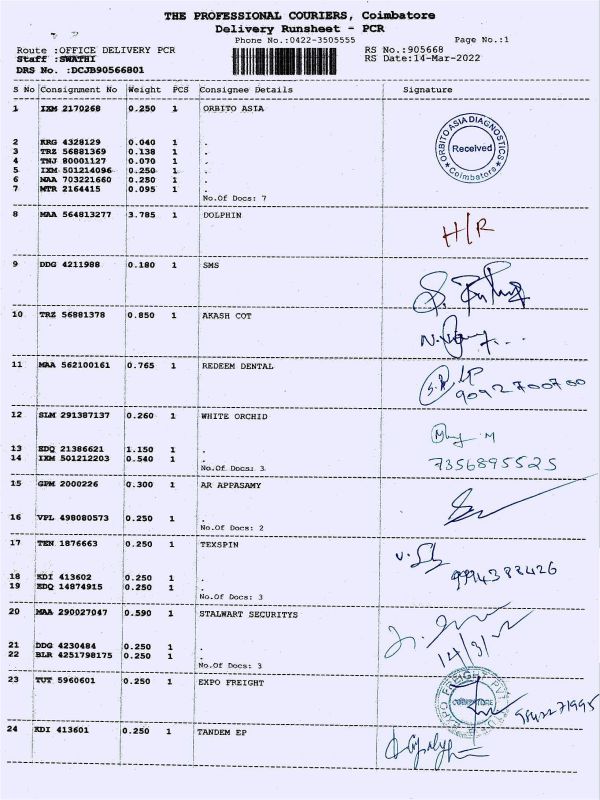 THE PROFESSIONAL COURIERS, Coimbatore
Delivery Runsheet - PCR
Phone No.:0422-3505555 Page No.:1
Route :OFFICE DELIVERY PCR RS No.:905668
Staff :SWATHI RS Date:14-Mar-2022
DRS No. :DCJB90566801
S No Consignment No Weight PCS Consignee Details Signature
1 IXM 2170268 0.250 1 ORBITO ASIA
ORBITO ASIA DIAGNOSTICS
Received
Coimbatore
2 KRG 4328129 0.040 1 .
3 TRZ 56881369 0.138 1 .
4 TNJ 80001127 0.070 1 .
5 IXM 501214096 0.250 1 .
6 MAA 703221660 0.250 1 .
7 MTR 2164415 0.095 1 .
No.Of Docs: 7
8 MAA 564813277 3.785 1 DOLPHIN H/R
9 DDG 4211988 0.180 1 SMS
10 TRZ 56881378 0.850 1 AKASH COT
11 MAA 562100161 0.765 1 REDEEM DENTAL
9092700700
12 SLM 291387137 0.260 1 WHITE ORCHID
13 EDQ 21386621 1.150 1 .
14 IXM 501212203 0.540 1 . 7356895525
No.Of Docs: 3
15 GPM 2000226 0.300 1 AR APPASAMY
16 VPL 498080573 0.250 1 .
No.Of Docs: 2
17 TEN 1876663 0.250 1 TEXSPIN
9994388426
18 KDI 413602 0.250 1 .
19 EDQ 14874915 0.250 1 .
No.Of Docs: 3
20 MAA 290027047 0.590 1 STALWART SECURITYS
21 DDG 4230484 0.250 1 .
22 BLR 4251798175 0.250 1 .
No.Of Docs: 3
23 TUT 5960601 0.250 1 EXPO FREIGHT
COIMBATORE
24 KDI 413601 0.250 1 TANDEM EP